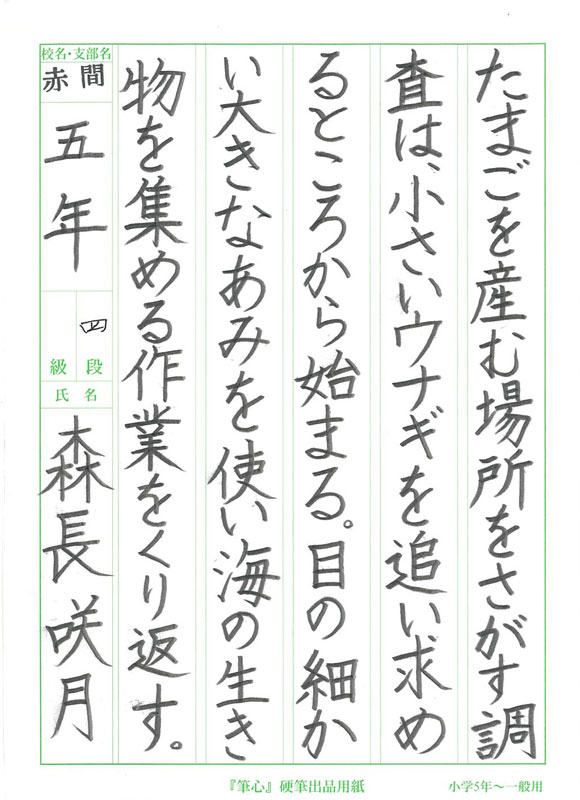 たまごを産む場所をさがす調
査は、小さいウナギを追い求め
るところから始まる。目の細か
い大きなあみを使い海の生き
物を集める作業をくり返す。
校名・支部名
赤間
五年
四
段
級
氏名
森長咲月
『筆心』硬筆出品用紙
小学5年～一般用